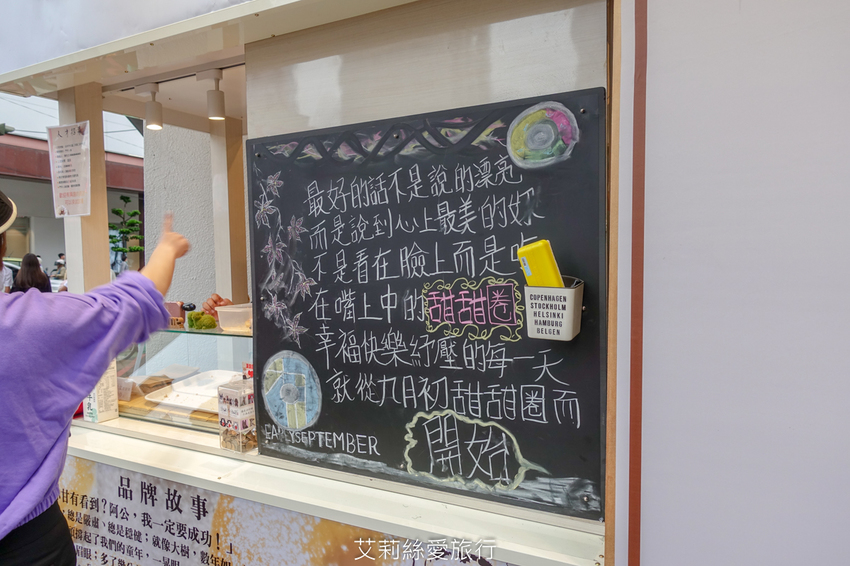 最好的話不是說的漂亮
而是說到心上最美的妳
不是看在臉上而是
在嘴上中的甜甜圈
幸福快樂紓壓的每一天
就從九月初甜甜圈而
開始
EARLYSEPTEMBER
COPENHAGEN
STOCKHOLM
HELSINKI
HAMBURG
BELGEN
品牌故事
甘有看到？阿公，我一定要成功！」
總是嚴肅、總是穩健；就像大樹，數年如
撐起了我們的童年，一晃眼
艾莉絲愛旅行